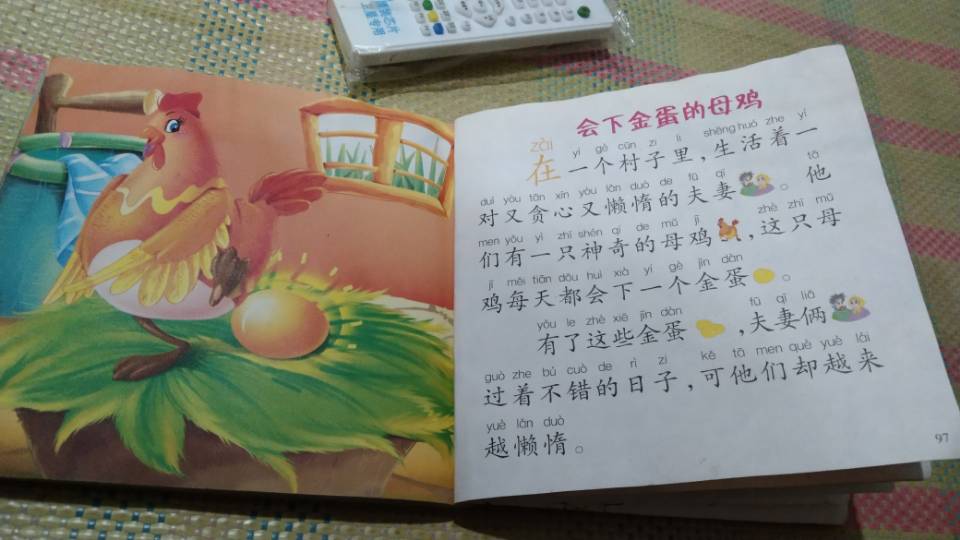 会下金蛋的母鸡
zài yí gè cūn zi li shēng huó zhe yí
在一个村子里，生活着一
duì yòu tān xīn yòu lǎn duò de fū qī tā
对又贪心又懒惰的夫妻。他
men yǒu yì zhī shén qí de mǔ jī zhè zhī mǔ
们有一只神奇的母鸡，这只母
jī měi tiān dōu huì xià yí gè jīn dàn
鸡每天都会下一个金蛋。
yǒu le zhè xiē jīn dàn fū qī liǎ
有了这些金蛋，夫妻俩
guò zhe bú cuò de rì zi kě tā men què yuè lái
过着不错的日子，可他们却越来
yuè lǎn duò
越懒惰。
97